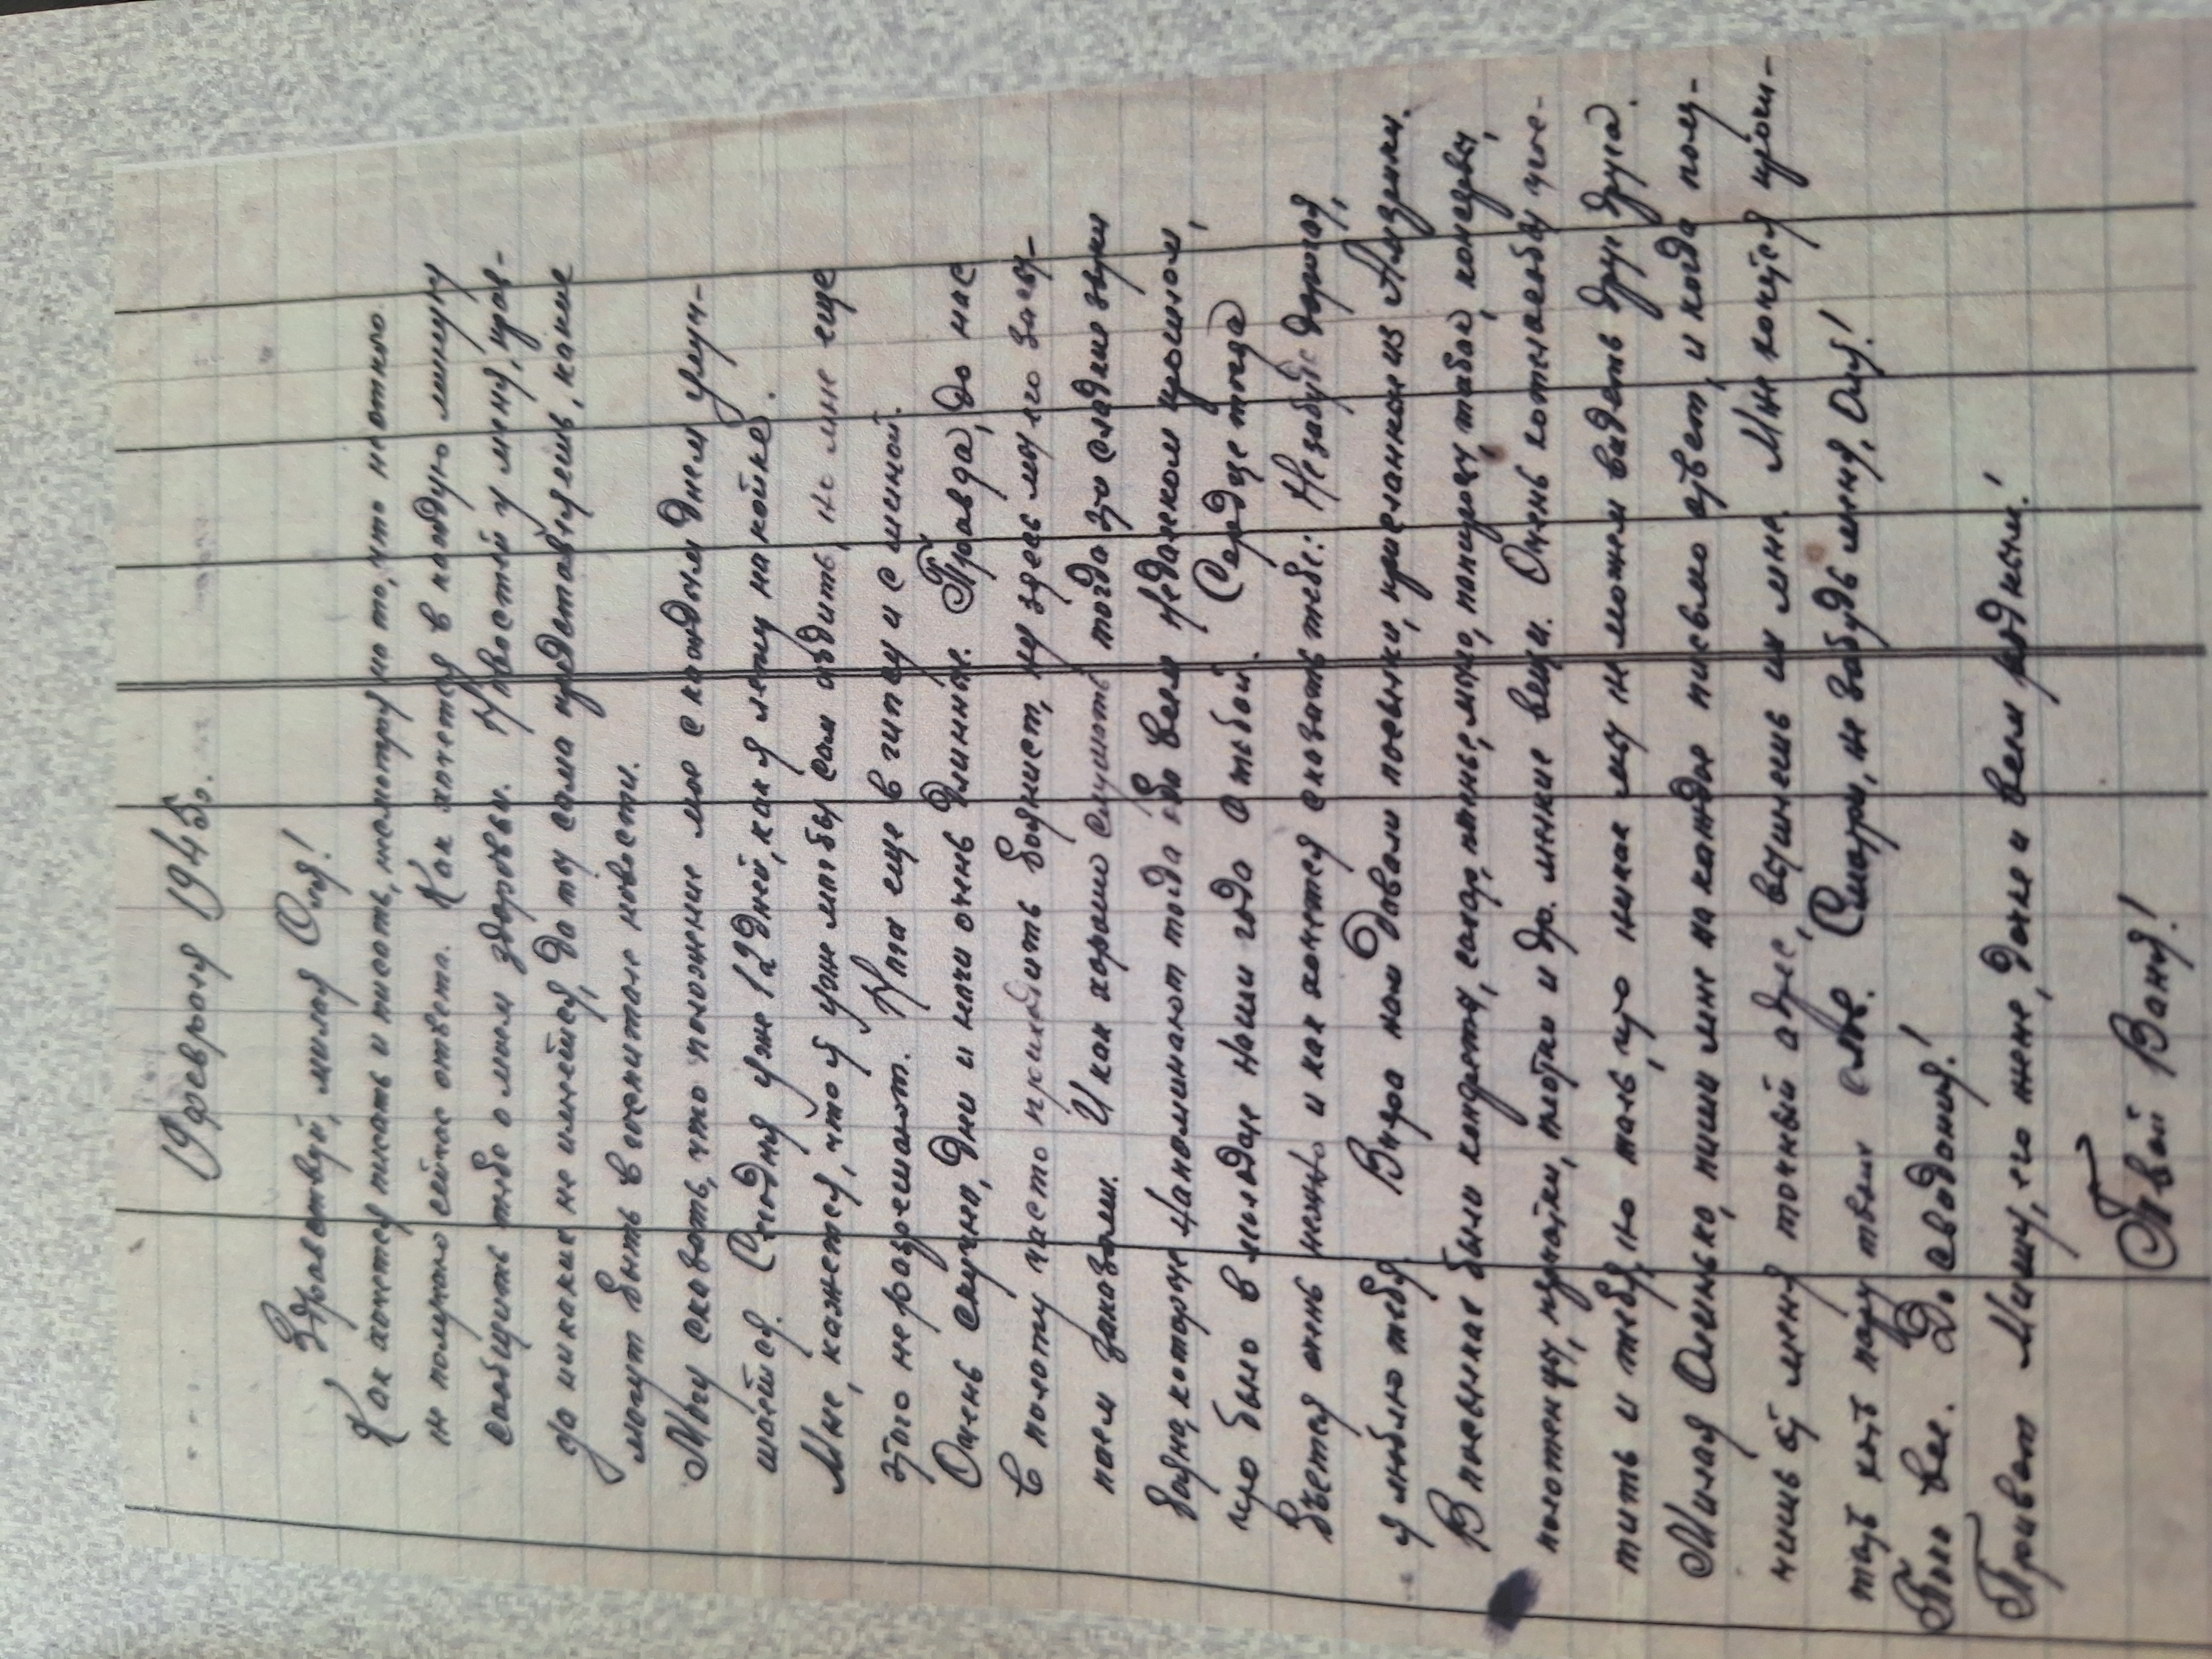 19 февраля 1945г.
Здравствуй, милая Оля!
Как хочется писать и писать, несмотря на то, что не от кого
не получаю сейчас ответа. Как хочется в каждую минуту
сообщить тебе о моем здоровьи. Новостей у меня, прав-
да никаких не имеется, да ты сама представляешь, какие
могут быть в госпитале новости.
Могу сказать, что положение мое с каждым днем улуч-
шается. Сегодня уже 12 дней, как я лежу на койке.
Мне, кажется, что я уже мог бы сам ходить, но мне еще
этого не разрешают. Нога еще в гипсу и с шиной.
Очень скучно, дни и ночи очень длинные. Правда, до нас
в палату часто приходит баянист, ну здесь мы его засы-
паем заказами. И как хорошо слушать тогда эти сладкие звуки
баяна, которые напоминают тогда обо всем недалеком прошлом,
что было в молодые наши года с тобой. Сердце тогда
бьется очень нежно и как хочется сказать тебе: Незабудь дорогая,
я люблю тебя. Вчера нам давали посылки, присланные из Америки.
В посылках было конфеты, сахар, печенье, мыло, папиросы, табак, консервы,
полотенцы, платки и др. мелкие вещи. Очень хотелось бы уго-
тить и тебя, но только мы не можем видеть друг друга.
Милая Оленька, пиши мне на каждое письмо ответ, и когда полу-
чишь от меня точный адрес, вышлешь их мне. Мне хочется прочи-
тать хоть пару твоих слов. Смотри, не забудь меня, Оля!
Пока все. До свиданья!
Привет Мише, его жене, дочке и всем родным!
Твой Ваня!